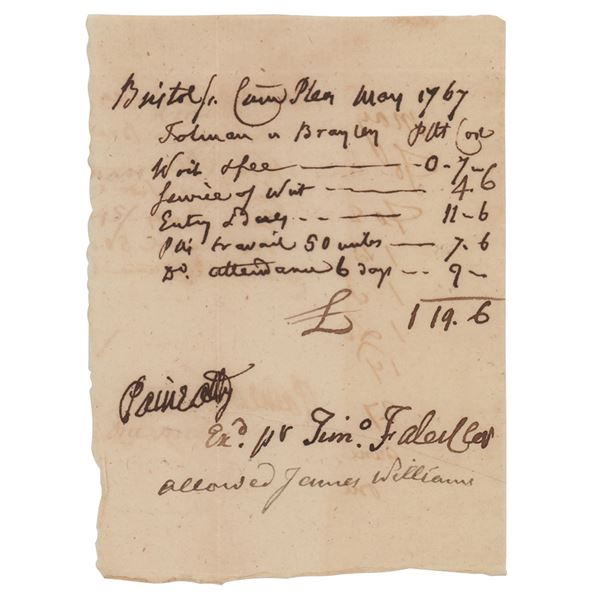 Bristol ss. Com Pleas May 1767
Tolman v Brayley Plt Cost
Writ & fee — 0 - 7 -
Service of Writ — 4. 6
Entry & Jury - - — 11 - 6
Plts travail 50 miles — 7. 6
Do. attendance 6 days - - 9 -
£ 1 19. 6
Paine atty
Exd. pr Timo. Fales Cler
allowed James Williams